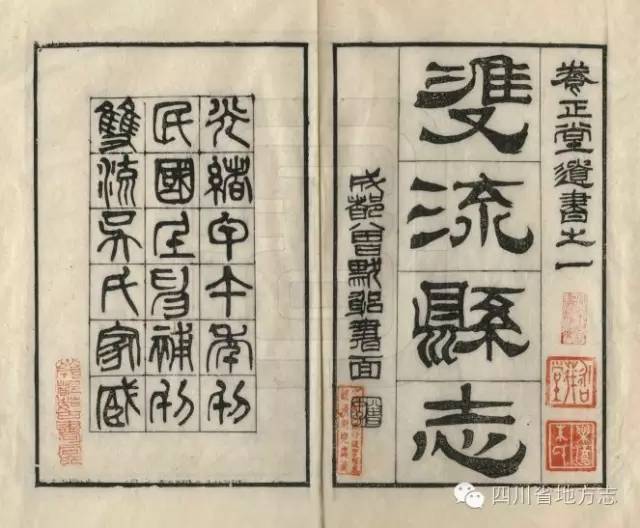 養正堂遺書之一
雙流縣志
成都曾默躬書面
光緒甲午年刊
民國壬申補刊
雙流吳氏家藏
四川省地方志